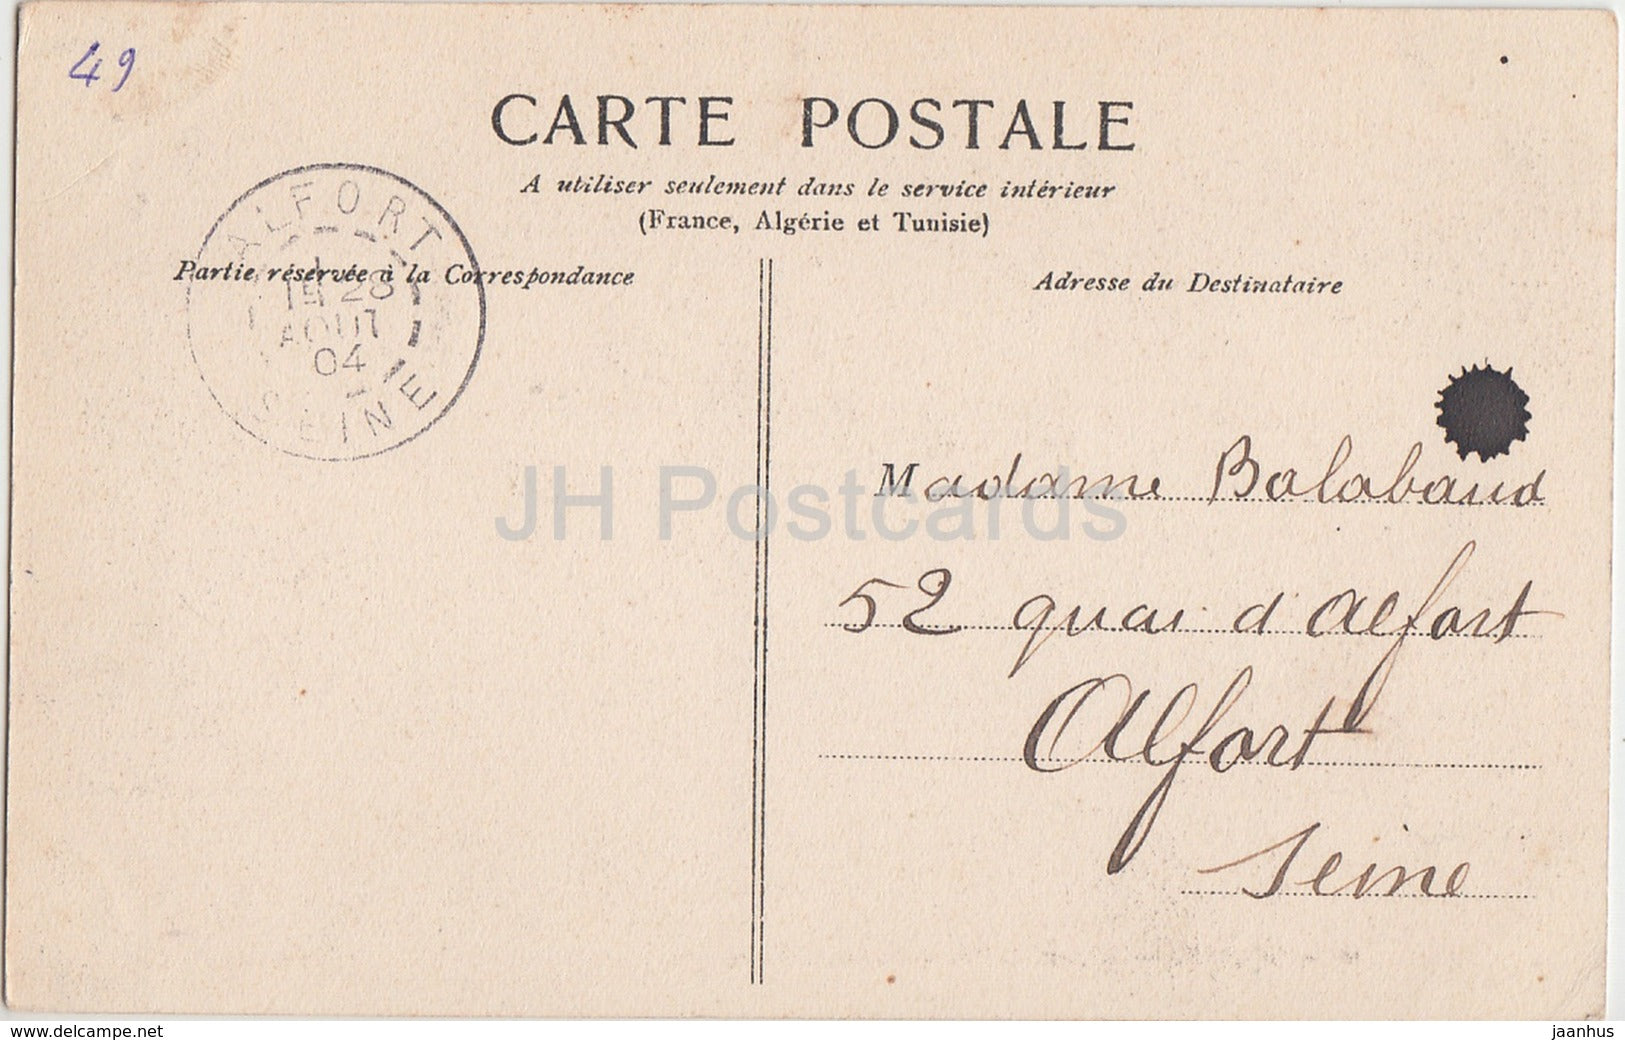 49
CARTE POSTALE
A utiliser seulement dans le service intérieur
(France, Algérie et Tunisie)
Partie réservée à la Correspondance
Adresse du Destinataire
ALFORT
28
AOUT
04
SEINE
Madame Balabaud
52 quai d'Alfort
Alfort
Seine
JH Postcards
www.delcampe.net
jaanhus